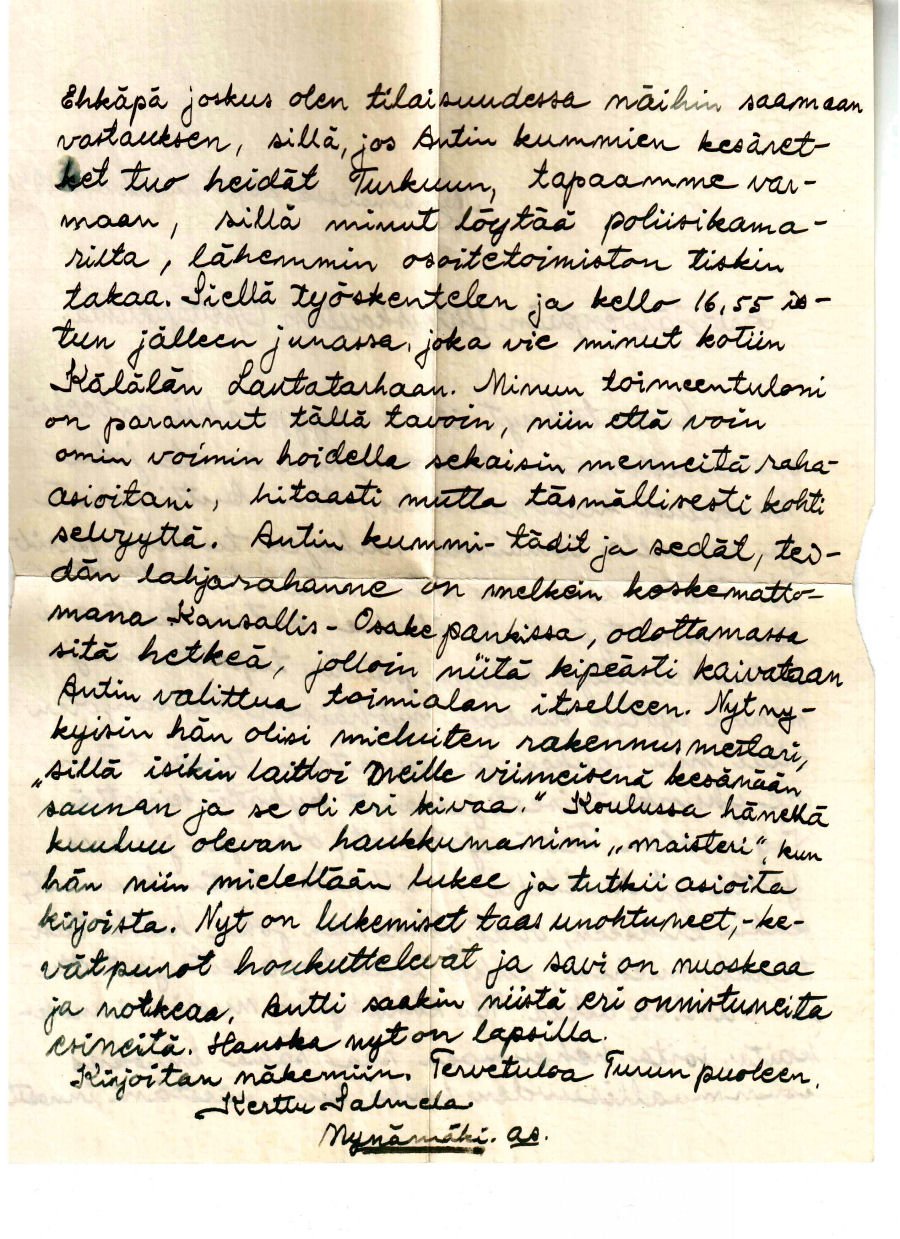 Ehkäpä joskus olen tilaisuudessa näihin saamaan
vastauksen, sillä, jos Antin kummien kesäret-
ket tuo heidät Turkuun, tapaamme var-
maan, sillä minut löytää poliisikama-
rilta, lähemmin osoitetoimiston tiskin
takaa. Siellä työskentelen ja kello 16,55 is-
tun jälleen junassa, joka vie minut kotiin
Kälälän Lautatarhaan. Minun toimeentuloni
on parannut tällä tavoin, niin että voin
omin voimin hoidella sekaisin menneitä raha-
asioitani, hitaasti mutta täsmällisesti kohti
selvyyttä. Antin kummi-tädit ja sedät, tei-
dän lahjarahanne on melkein koskematto-
mana Kansallis-Osakepankissa, odottamassa
sitä hetkeä, jolloin niitä kipeästi kaivataan
Antin valittua toimialan itselleen. Nyt ny-
kyisin hän olisi mieluiten rakennusmestari,
„sillä isikin laittoi meille viimeisenä kesänään
saunan ja se oli eri kivaa.“ Koulussa hänellä
kuuluu olevan haukkumanimi „maisteri“, kun
hän niin mielellään lukee ja tutkii asioita
kirjoista. Nyt on lukemiset taas unohtuneet,-ke-
vätpurot houkuttelevat ja savi on nuoskeaa
ja notkeaa, Antti saakin niistä eri onnistuneita
esineitä. Hauska nyt on lapsilla.
Kirjoitan näkemiin. Tervetuloa Turun puoleen.
Kerttu Salmela
Mynämäki. as.